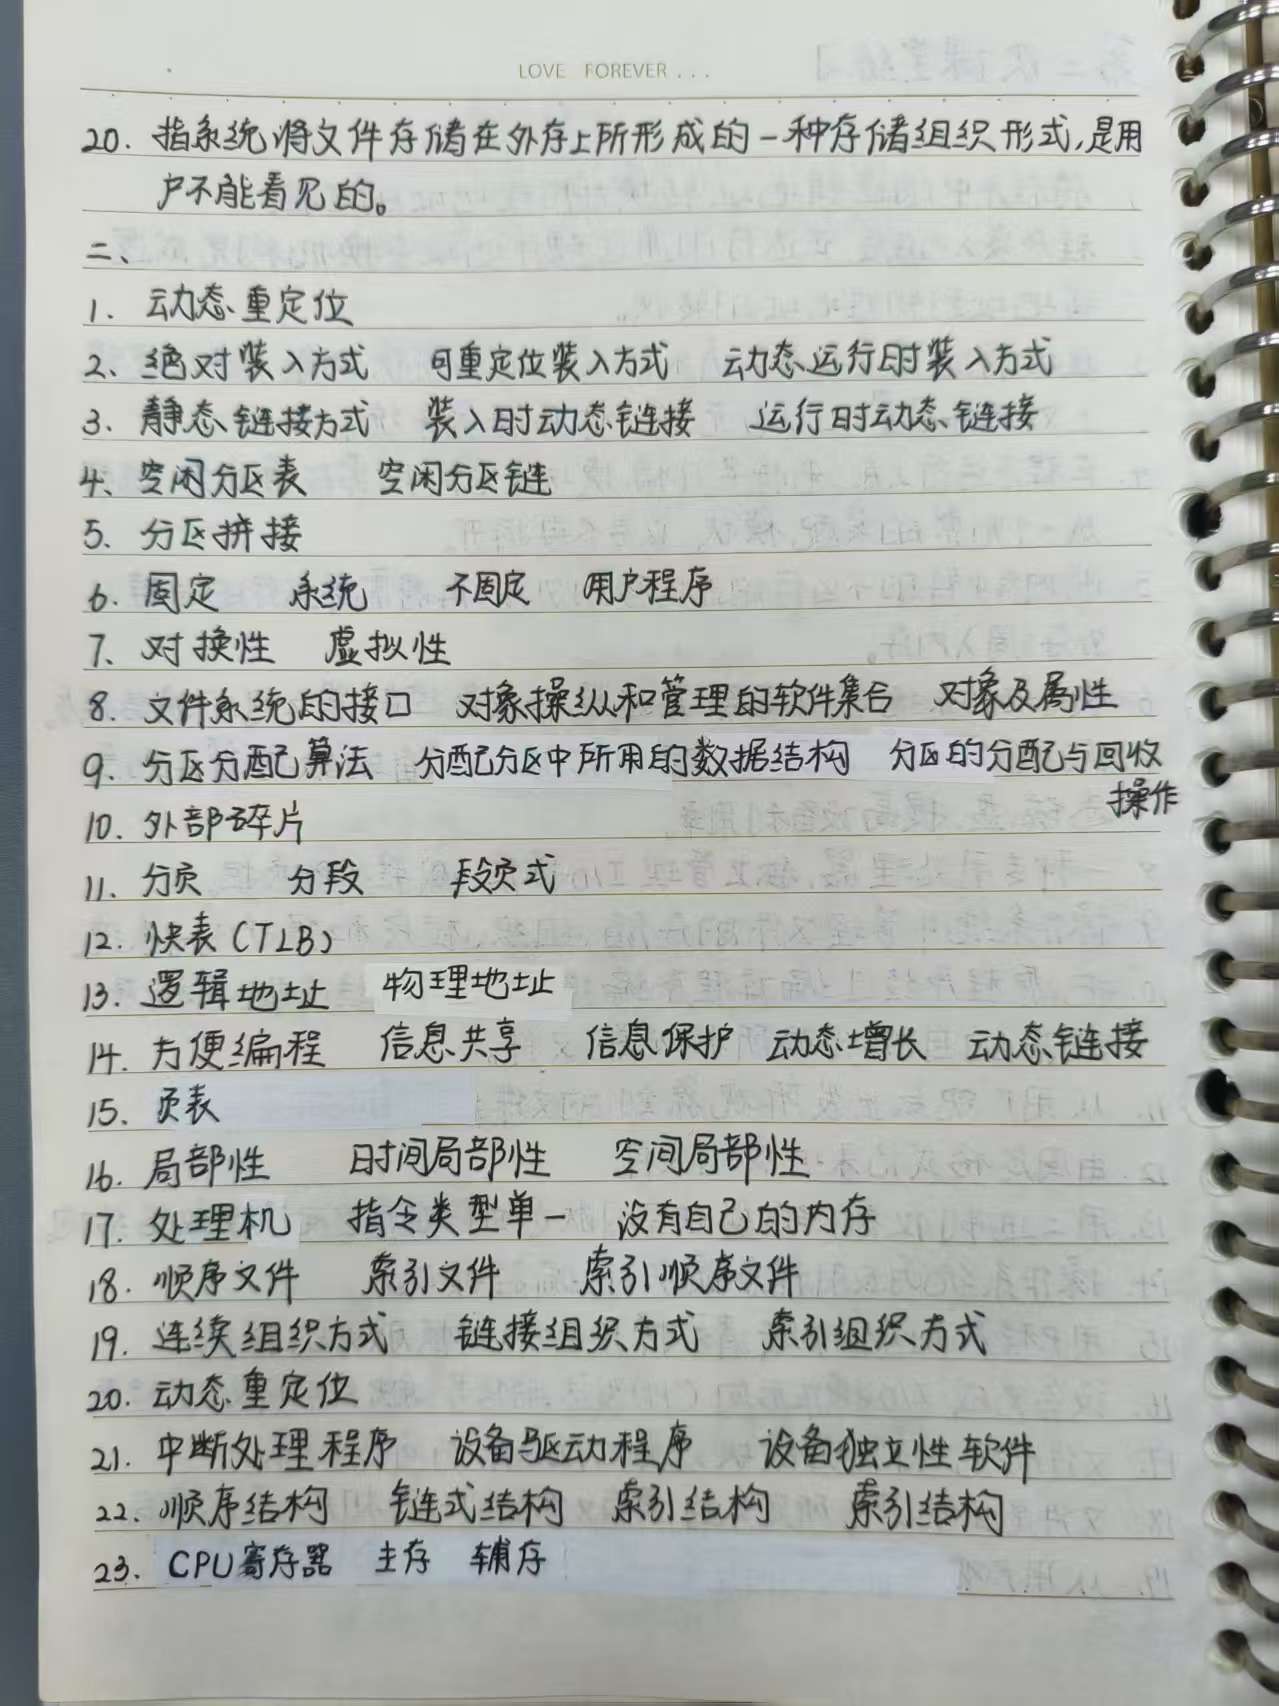 LOVE FOREVER...
20. 指系统将文件存储在外存上所形成的一种存储组织形式,是用
户不能看见的。
二、
1. 动态重定位
2、绝对装入方式 可重定位装入方式 动态运行时装入方式
3. 静态链接方式 装入时动态链接 运行时动态链接
4、空闲分区表 空闲分区链
5. 分区拼接
6. 固定 系统 不固定 用户程序
7、对换性 虚拟性
8. 文件系统的接口 对象操纵和管理的软件集合 对象及属性
9. 分区分配算法 分配分区中所用的数据结构 分区的分配与回收
操作
10. 外部碎片
11. 分页 分段 段页式
12. 快表(TLB)
13. 逻辑地址 物理地址
14. 方便编程 信息共享 信息保护 动态增长 动态链接
15. 页表
16. 局部性 时间局部性 空间局部性
17. 处理机 指令类型单一 没有自己的内存
18. 顺序文件 索引文件 索引顺序文件
19. 连续组织方式 链接组织方式 索引组织方式
20. 动态重定位
21. 中断处理程序 设备驱动程序 设备独立性软件
22. 顺序结构 链式结构 索引结构 索引结构
23. CPU寄存器 主存 辅存